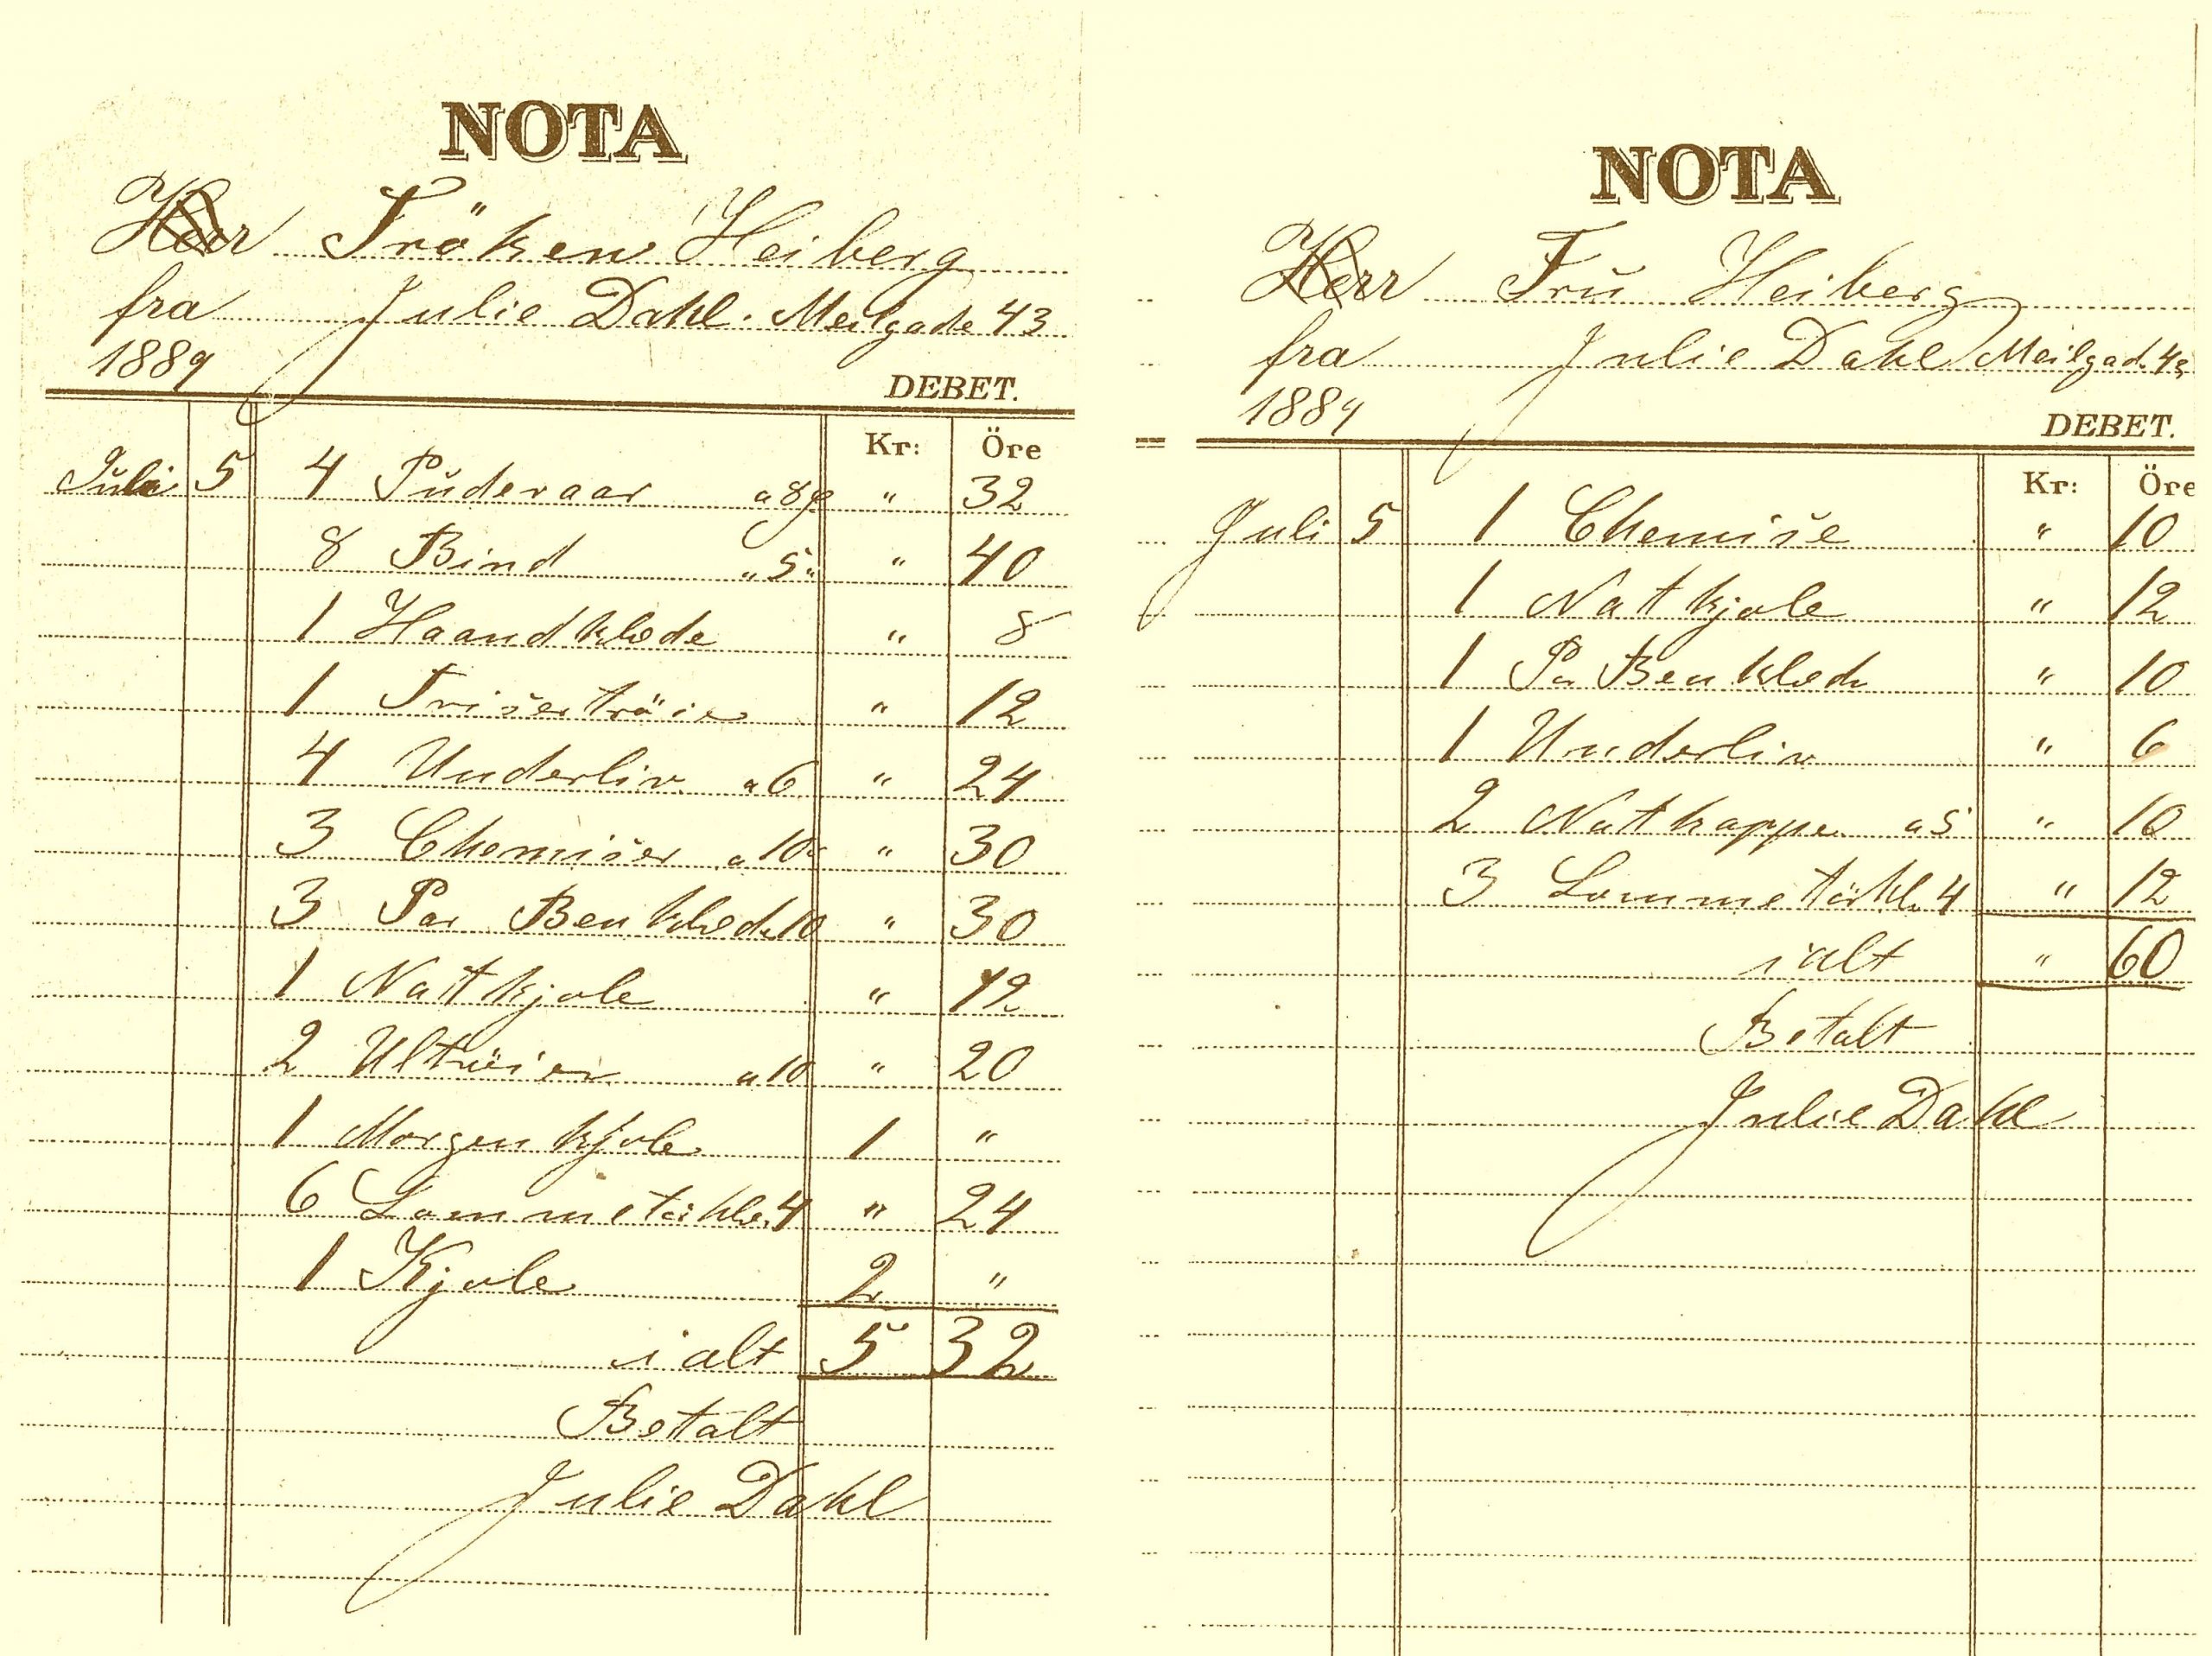 NOTA
Herr Fröken Heiberg
fra Julie Dahl. Meilgade 43
1889
DEBET.
Kr: Öre
Juli 5 4 Püdevaar a 8 " 32
8 Bind " 5 " " 40
1 Haandklæde " 8
1 Frisertröie " 12
4 Underliv a 6 " 24
3 Chemiser a 10 " 30
3 Par Benklæde 10 " 30
1 Natkjole " 12
2 Ultröier a 10 " 20
1 Morgenkjole 1 "
6 Lommetörkl. 4 " 24
1 Kjole 2 "
i alt 5 32
Betalt
Julie Dahl
NOTA
Herr Frü Heiberg
fra Julie Dahl Meilgad. 43
1889
DEBET.
Kr: Öre
Juli 5 1 Chemise " 10
1 Natkjole " 12
1 Pa Benklæde " 10
1 Underliv " 6
2 Natkappe a 5 " 10
3 Lommetörkl. 4 " 12
i alt " 60
Betalt
Julie Dahl